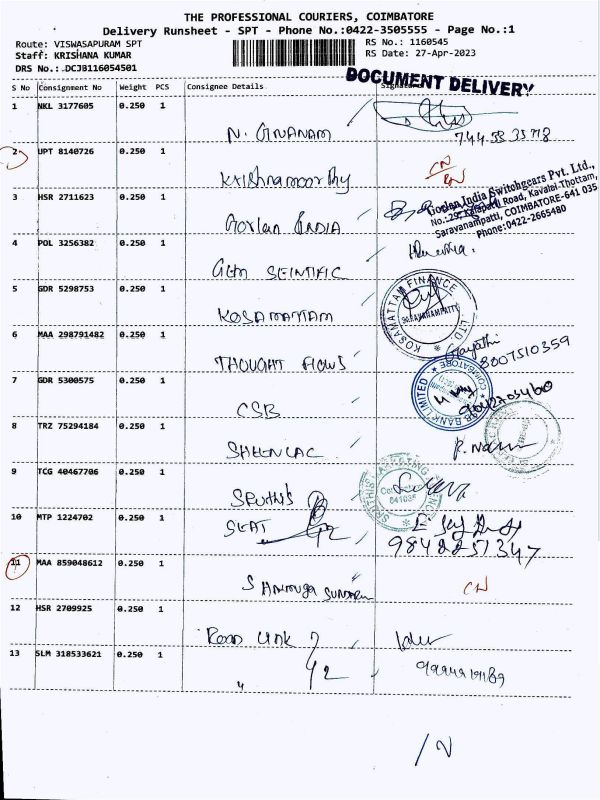 THE PROFESSIONAL COURIERS, COIMBATORE
Delivery Runsheet - SPT - Phone No.:0422-3505555 - Page No.:1
Route: VISWASAPURAM SPT RS No.: 1160545
Staff: KRISHANA KUMAR RS Date: 27-Apr-2023
DRS No.: .DCJB116054501
DOCUMENT DELIVERY
S No Consignment No Weight PCS Consignee Details
1 NKL 3177605 0.250 1
N. GNANAM
2 UPT 8140726 0.250 1
Krishnamoorthy
3 HSR 2711623 0.250 1
Gorlan INDIA
Gorlan India Switchgears Pvt. Ltd.,
No.:29, Kalapatti Road, Kavalai-Thottam,
Saravanampatti, COIMBATORE-641 035
Phone:0422-2665480
4 POL 3256382 0.250 1
GEM SEINTIFIC
5 GDR 5298753 0.250 1
KOSAMATTAM
KOSAMATTAM FINANCE LTD.
SARAVANAMPATTY
6 MAA 298791482 0.250 1
THOUGHT FLOWS
Gayathri
8007510359
7 GDR 5300575 0.250 1
CSB
CSB BANK LIMITED COIMBATORE
8 TRZ 75294184 0.250 1
SHEENLAC
9 TCG 40467706 0.250 1
SRUTHI'S
10 MTP 1224702 0.250 1
SEAT
9842251347
11 MAA 859048612 0.250 1
SHANMUGA SUNDARAM
CN
12 HSR 2709925 0.250 1
Road Link
13 SLM 318533621 0.250 1
"